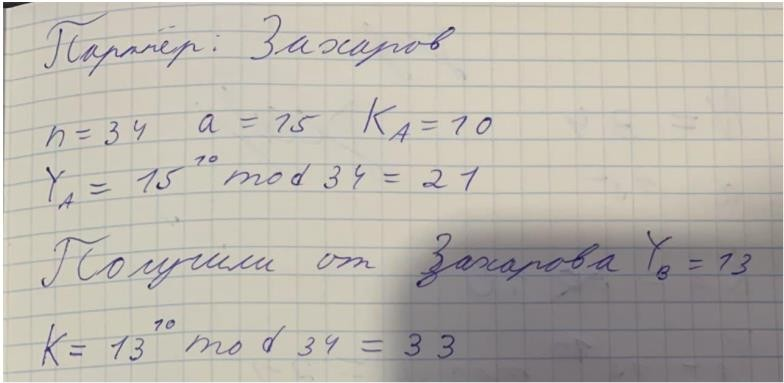 Партнёр: Захаров
n = 34 a = 15 K_A = 10
Y_A = 15^10 mod 34 = 21
Получили от Захарова Y_B = 13
K = 13^10 mod 34 = 33